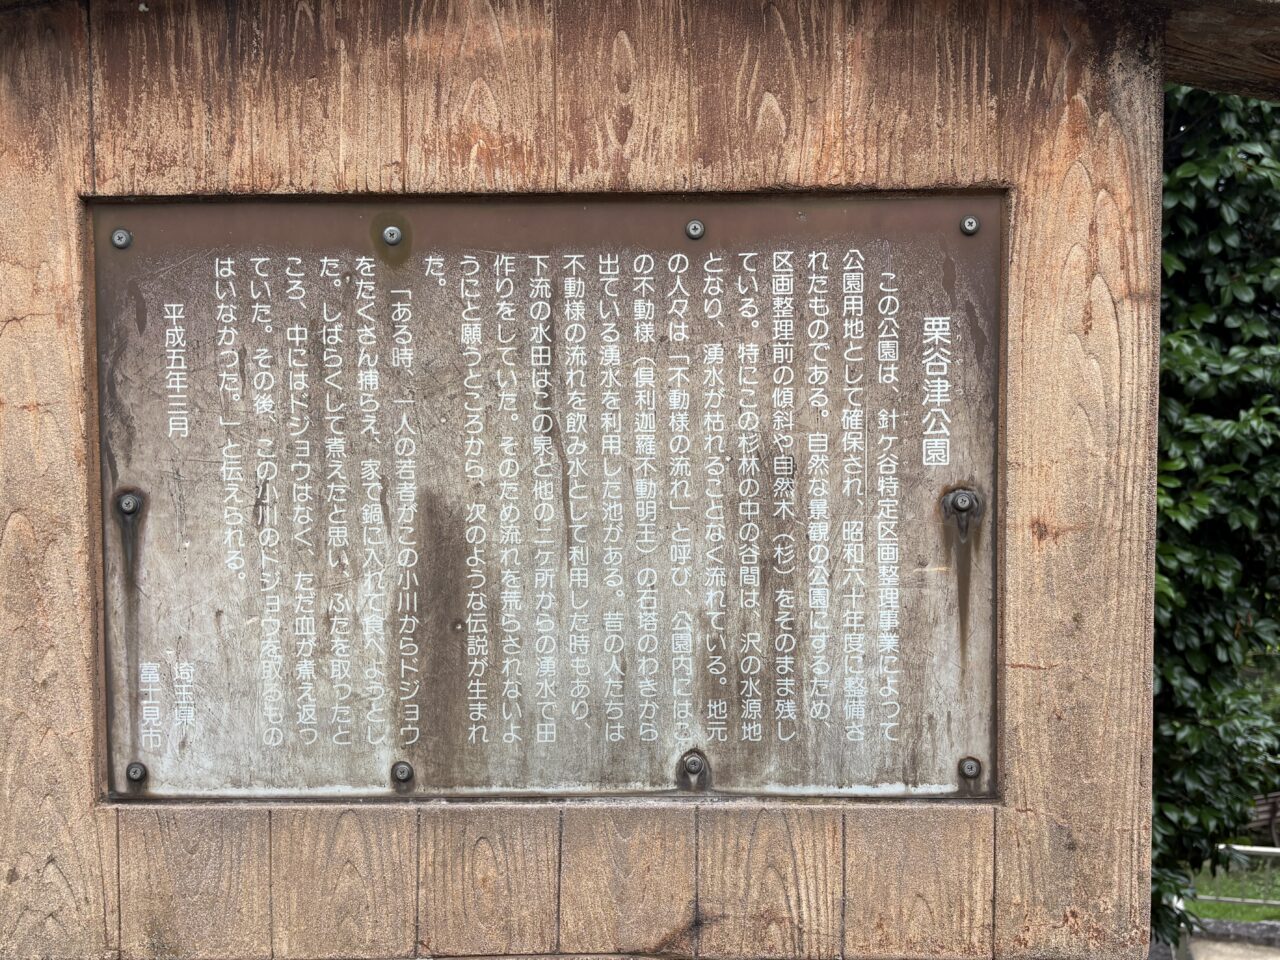 栗谷津公園
この公園は、針ケ谷特定区画整理事業によって
公園用地として確保され、昭和六十年度に整備さ
れたものである。自然な景観の公園にするため、
区画整理前の傾斜や自然木（杉）をそのまま残し
ている。特にこの杉林の中の谷間は、沢の水源地
となり、湧水が枯れることなく流れている。地元
の人々は「不動様の流れ」と呼び、公園内にはこ
の不動様（倶利迦羅不動明王）の石塔のわきから
出ている湧水を利用した池がある。昔の人たちは
不動様の流れを飲み水として利用した時もあり、
下流の水田はこの泉と他の二ヶ所からの湧水で田
作りをしていた。そのため流れを荒らされないよ
うにと願うところから、次のような伝説が生まれ
た。
「ある時、一人の若者がこの小川からドジョウ
をたくさん捕らえ、家で鍋に入れて食べようとし
た。しばらくして煮えたと思い、ふたを取ったと
ころ、中にはドジョウはなく、ただ血が煮え返っ
ていた。その後、この小川のドジョウを取るもの
はいなかった。」と伝えられる。
平成五年三月
埼玉県
富士見市